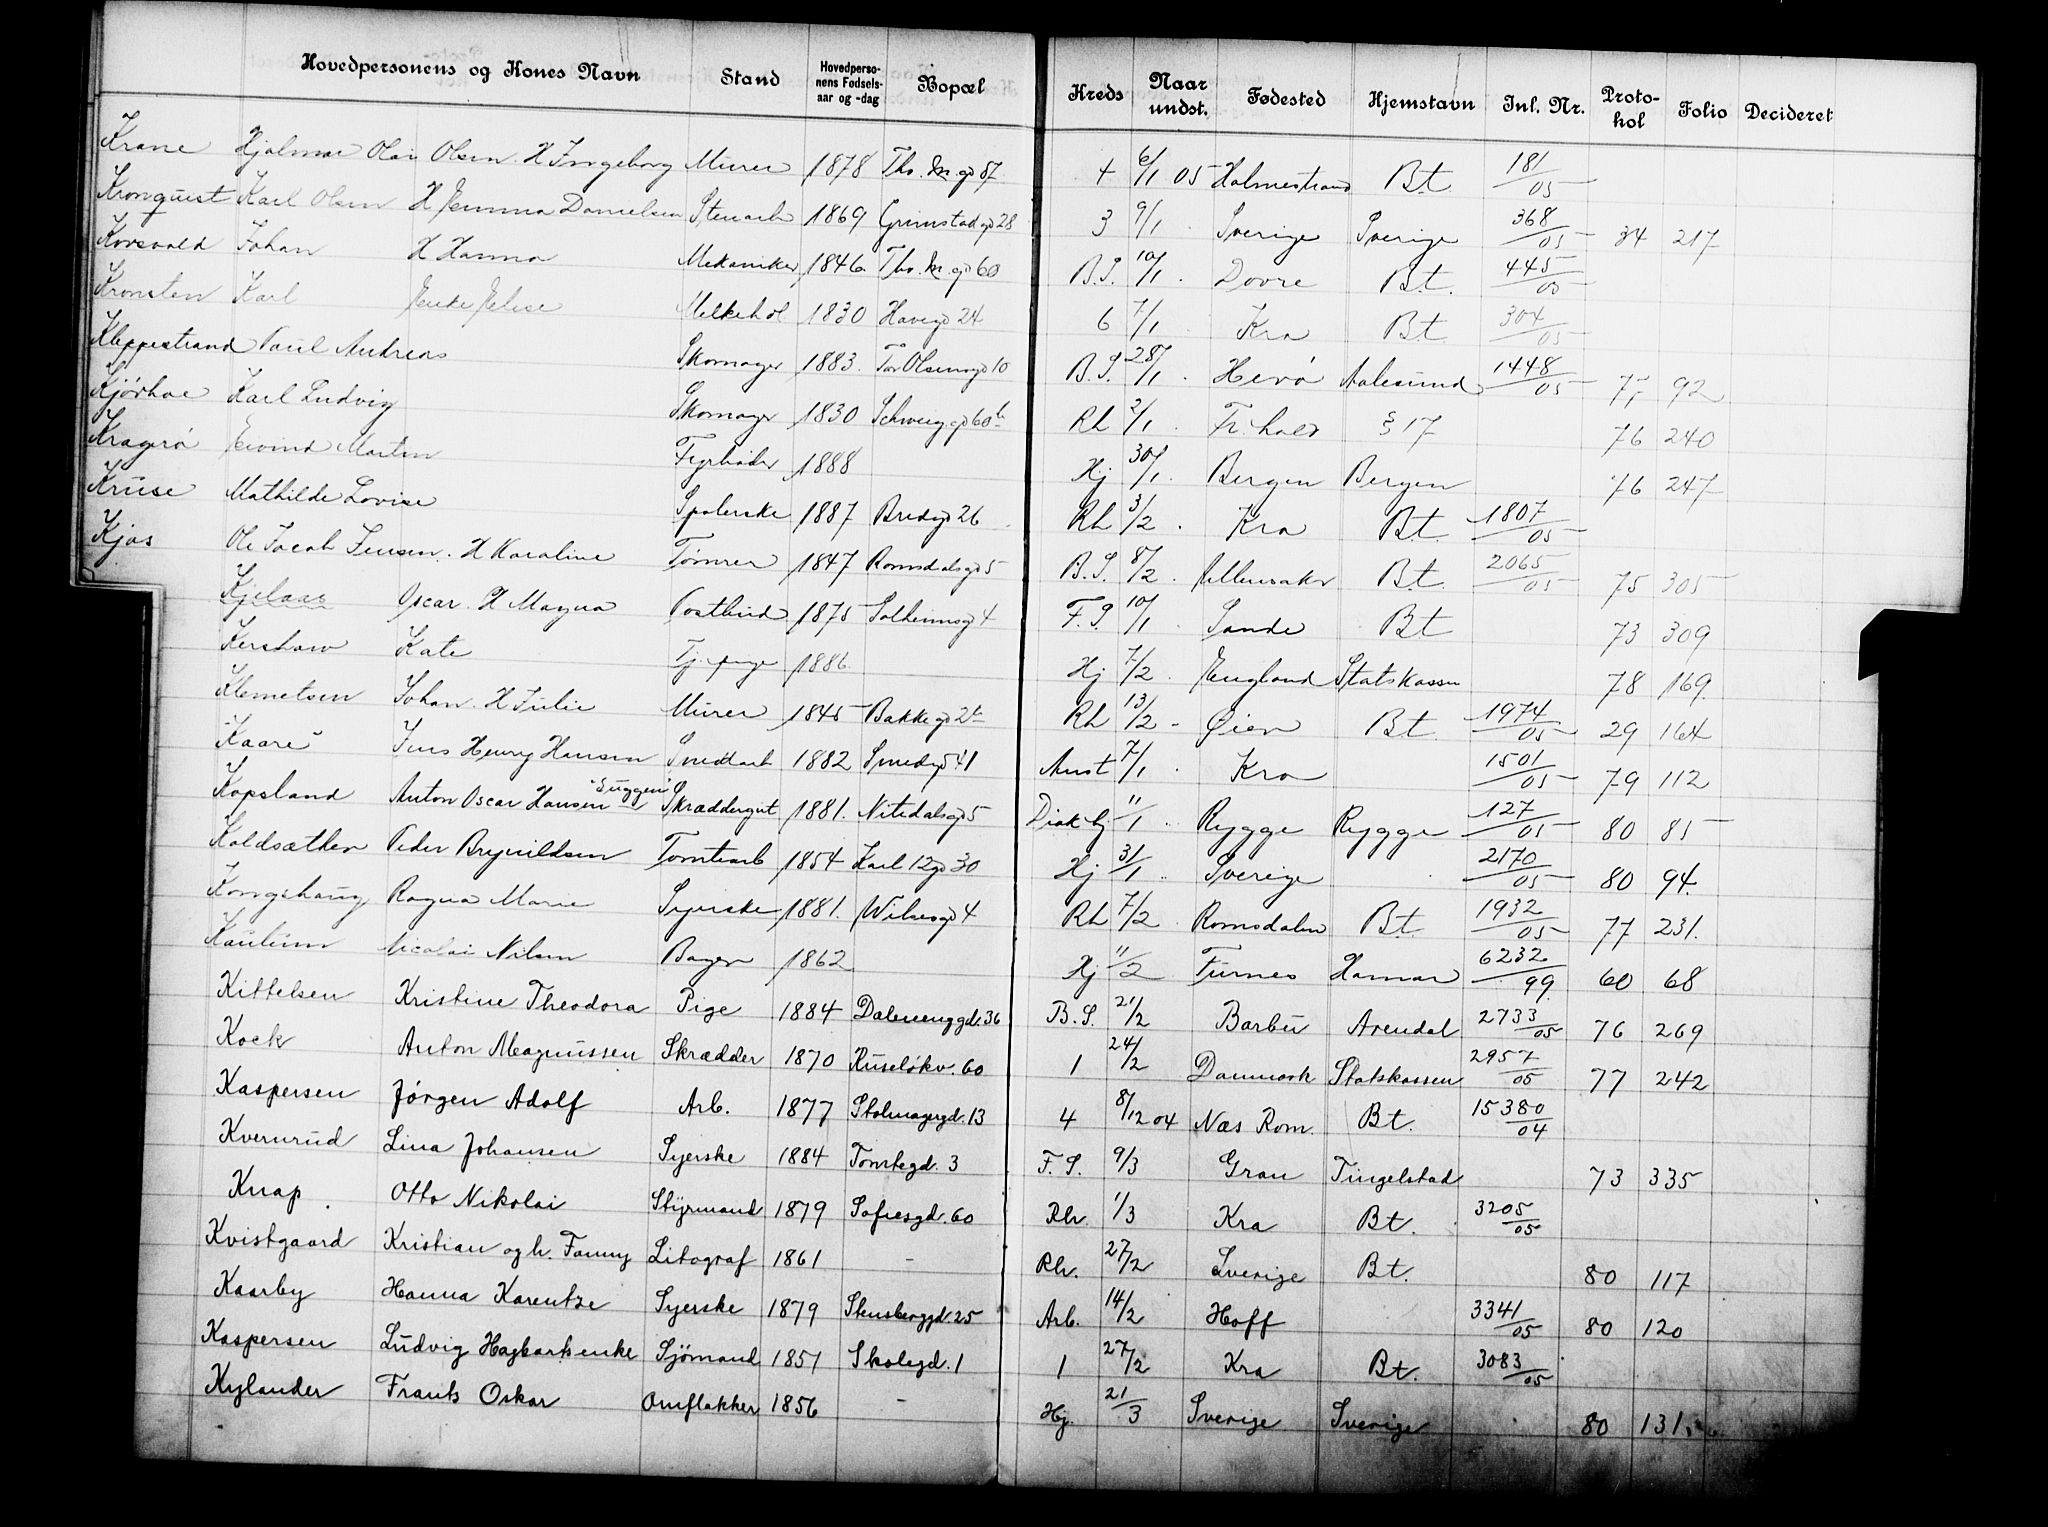 Hovedpersonens og Kones Navn Stand Hovedperso-nens Fødsels-aar og -dag Bopæl Kreds Naar undst. Fødested Hjemstavn Inl. Nr. Proto-kol Folio Decideret
Krane Hjalmar Olai Olsen. H Ingeborg Murer 1878 Tho. M. gd 87 4 6/1 05 Holmestrand Bt. 181/05
Kronquist Karl Olsen H Emma Danielsen Stenarb 1869 Grimstad gd 28 3 9/1 Sverige Sverige 368/05 34 217
Korsvold Johan H Hanna Mekaniker 1846 Tho. M. gd 60 B.S. 10/1 Dovre Bt. 445/05
Kronsten Karl Enke Elise Melkehdl 1830 Havegd 24 6 7/1 Kra Bt 304/05
Kleppestrand Paul Andreas Skomager 1883. Tor Olsensgd 10 B.S. 28/1 Herø Aalesund 1448/05 75 92
Kjørhoe Karl Ludvig Skomager 1830 Schweiggd 60 b Rh 2/1 Fr.hald § 17 76 240
Kragerø Eivind Martin Fyrbøder 1888 Hj 30/1 Bergen Bergen 76 247
Kruse Mathilde Lovise Spolerske 1887 Bredgd 26 Rh 3/2 Kra Bt. 1807/05
Kjos Ole Jacob Jensen. H Karoline Tømrer 1847 Romsdalsgd 5 B.S. 8/2 Ullensaker Bt. 2065/05 75 305
Kjelaas Oscar. H Magna Postbud 1875 Solheimsgd 4 F.S. 10/1 Sande Bt 73 309
Kershaw Kate Tj.pige 1886. Hj 7/2 England Statskassen 78 169.
Klemetsen Johan. H Julie Murer 1845 Bakkegd 2 b Rh 13/2 Øien Bt. 1974/05 29 164
Kaare Jens Henry Hansen Smedarb 1882 Smedgd 541 Anst 7/1 Kra 1501/05 79 112
Kopsland Anton Oscar Hansen "Suggen" Skræddergut 1881. Nitedalsgd 5 Diak hj 11/1 Rygge Rygge 127/05 80 85
Koldsæther Peder Brynildsen Tomtearb 1854 Karl 12gd 30 Hj 31/1 Sverige 2170/05 80 94.
Kongshaug Ragna Marie Syerske 1881. Wilsesgd 4 Rh 7/2 Romsdalen Bt. 1932/05 77 231.
Kaulum Nicolai Nilsen Bager 1862 Hj 11/2 Furnes Hamar 6232/99 60 68
Kittelsen Kristine Theodora Pige 1884 Dalenenggd. 36 B.S. 21/2 Barbu Arendal 2733/05 76 269
Kock Anton Magnussen Skrædder 1870 Ruseløkv. 60 1 24/2 Danmark Statskassen 2957/05 77 242
Kaspersen Jørgen Adolf Arb. 1877 Stolmagergd. 13 4 8/12 04 Næs Rom. Bt. 15380/04
Kvernrud Lina Johansen Syerske 1884 Tomtegd. 3 F.S. 9/3 Gran Tingelstad 73 335
Knap Otto Nikolai Styrmand 1879 Sofiesgd. 60 Rh. 1/3 Kra Bt. 3205/05
Kvistgaard Kristian og h. Fanny Litograf 1861 - Rh. 27/2 Sverige Bt. 80 117
Kaarby Hanna Karentze Syerske 1879 Stensberggd. 25 Arb. 14/2 Hoff 3341/05 80 120
Kaspersen Ludvig Hagbart enke Sjömand 1851 Skolegd. 1 1 27/2 Kra Bt. 3083/05
Kylander Frants Oskar Omflakker 1856 - Hj. 21/3 Sverige Sverige 80 131.